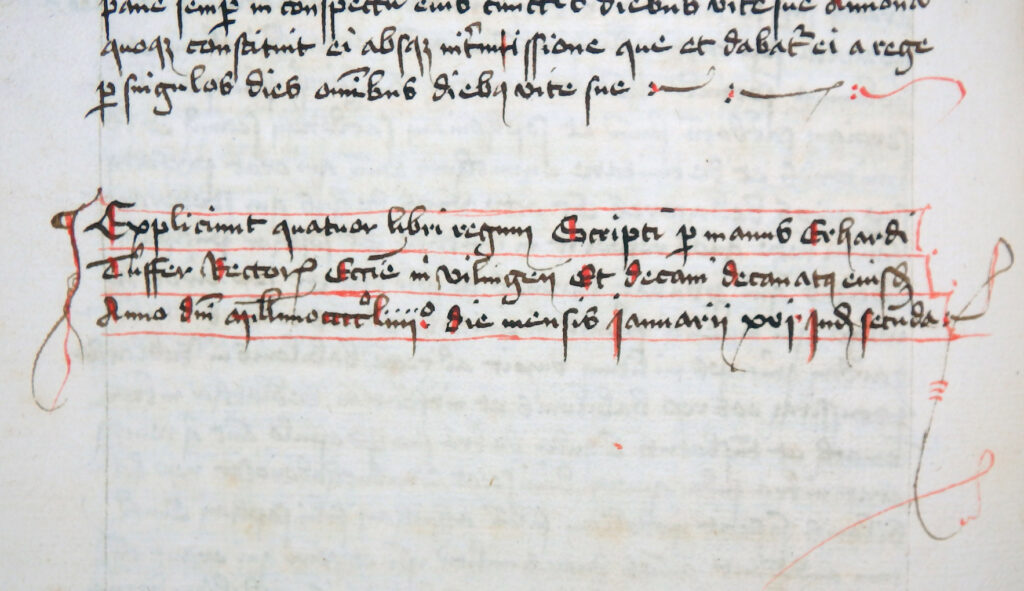 pane semp in conspectu eius cunctis diebus vite sue Annona
quoqz constituit ei absqz intmissione que et dabatr ei a rege
p singulos dies omibus diebq vite sue
Expliciunt quatuor libri regum Scripti p manus Erhardi
Tuffer Rectorꝭ Eccie in Vilingen Et decani decanatq eiusd
Anno dni millimo cccc liiii o die mensis Januarii xvi Ind secunda